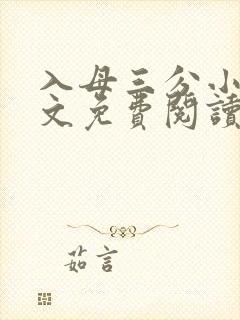 入母三分小
文免費閱讀
茹言